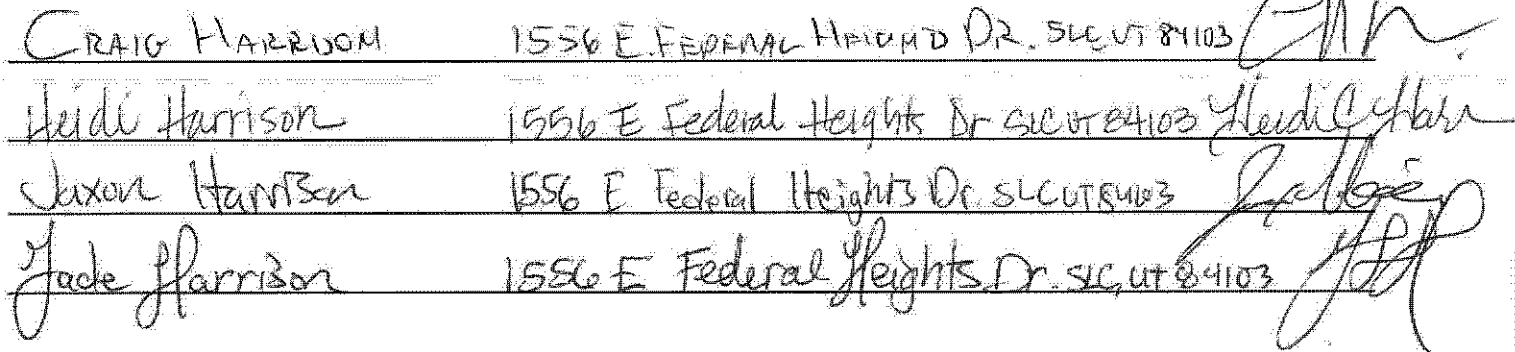 CRAIG HARRISON 1556 E. FEDERAL HEIGHTS DR. SLC, UT 84103
Heidi Harrison 1556 E Federal Heights Dr SLC UT 84103 Heidi C Harr
Jaxon Harrison 1556 E Federal Heights Dr. SLC UT 84103
Jade Harrison 1556 E Federal Heights Dr. SLC, UT 84103